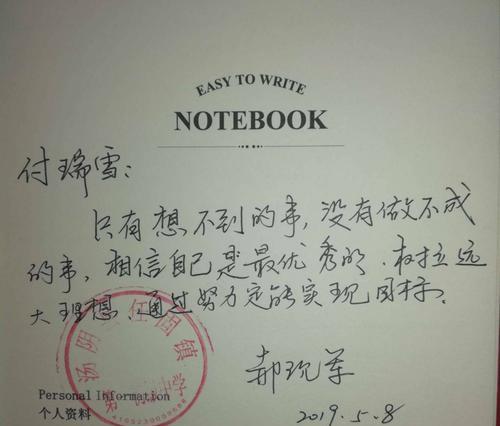 EASY TO WRITE
NOTEBOOK
付瑞雪：
只有想不到的事，没有做不成
的事，相信自己是最优秀的．树立远
大理想，通过努力定能实现目标。
汤阴 任固镇
第 中学
郝现军
Personal Information
个人资料
2019.5.8